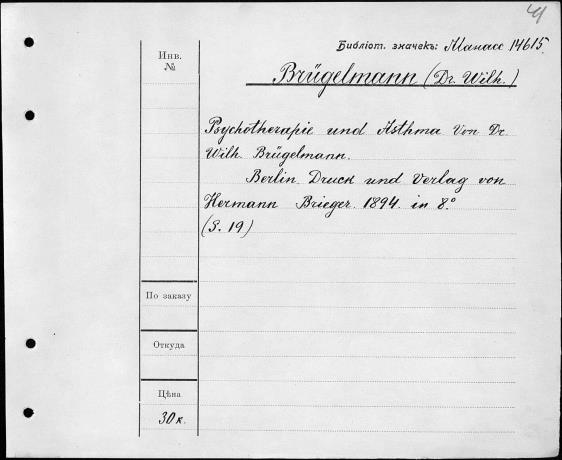 Библіот. значекъ: Манасс 14615.
Инв.
№
Brügelmann (Dr. Wilh.)
Psychotherapie und Asthma Von Dr.
Wilh. Brügelmann.
Berlin. Druck und Verlag von
Hermann Brieger. 1894. in 8.°
(S. 19)
По заказу
Откуда
Цѣна
30 к.